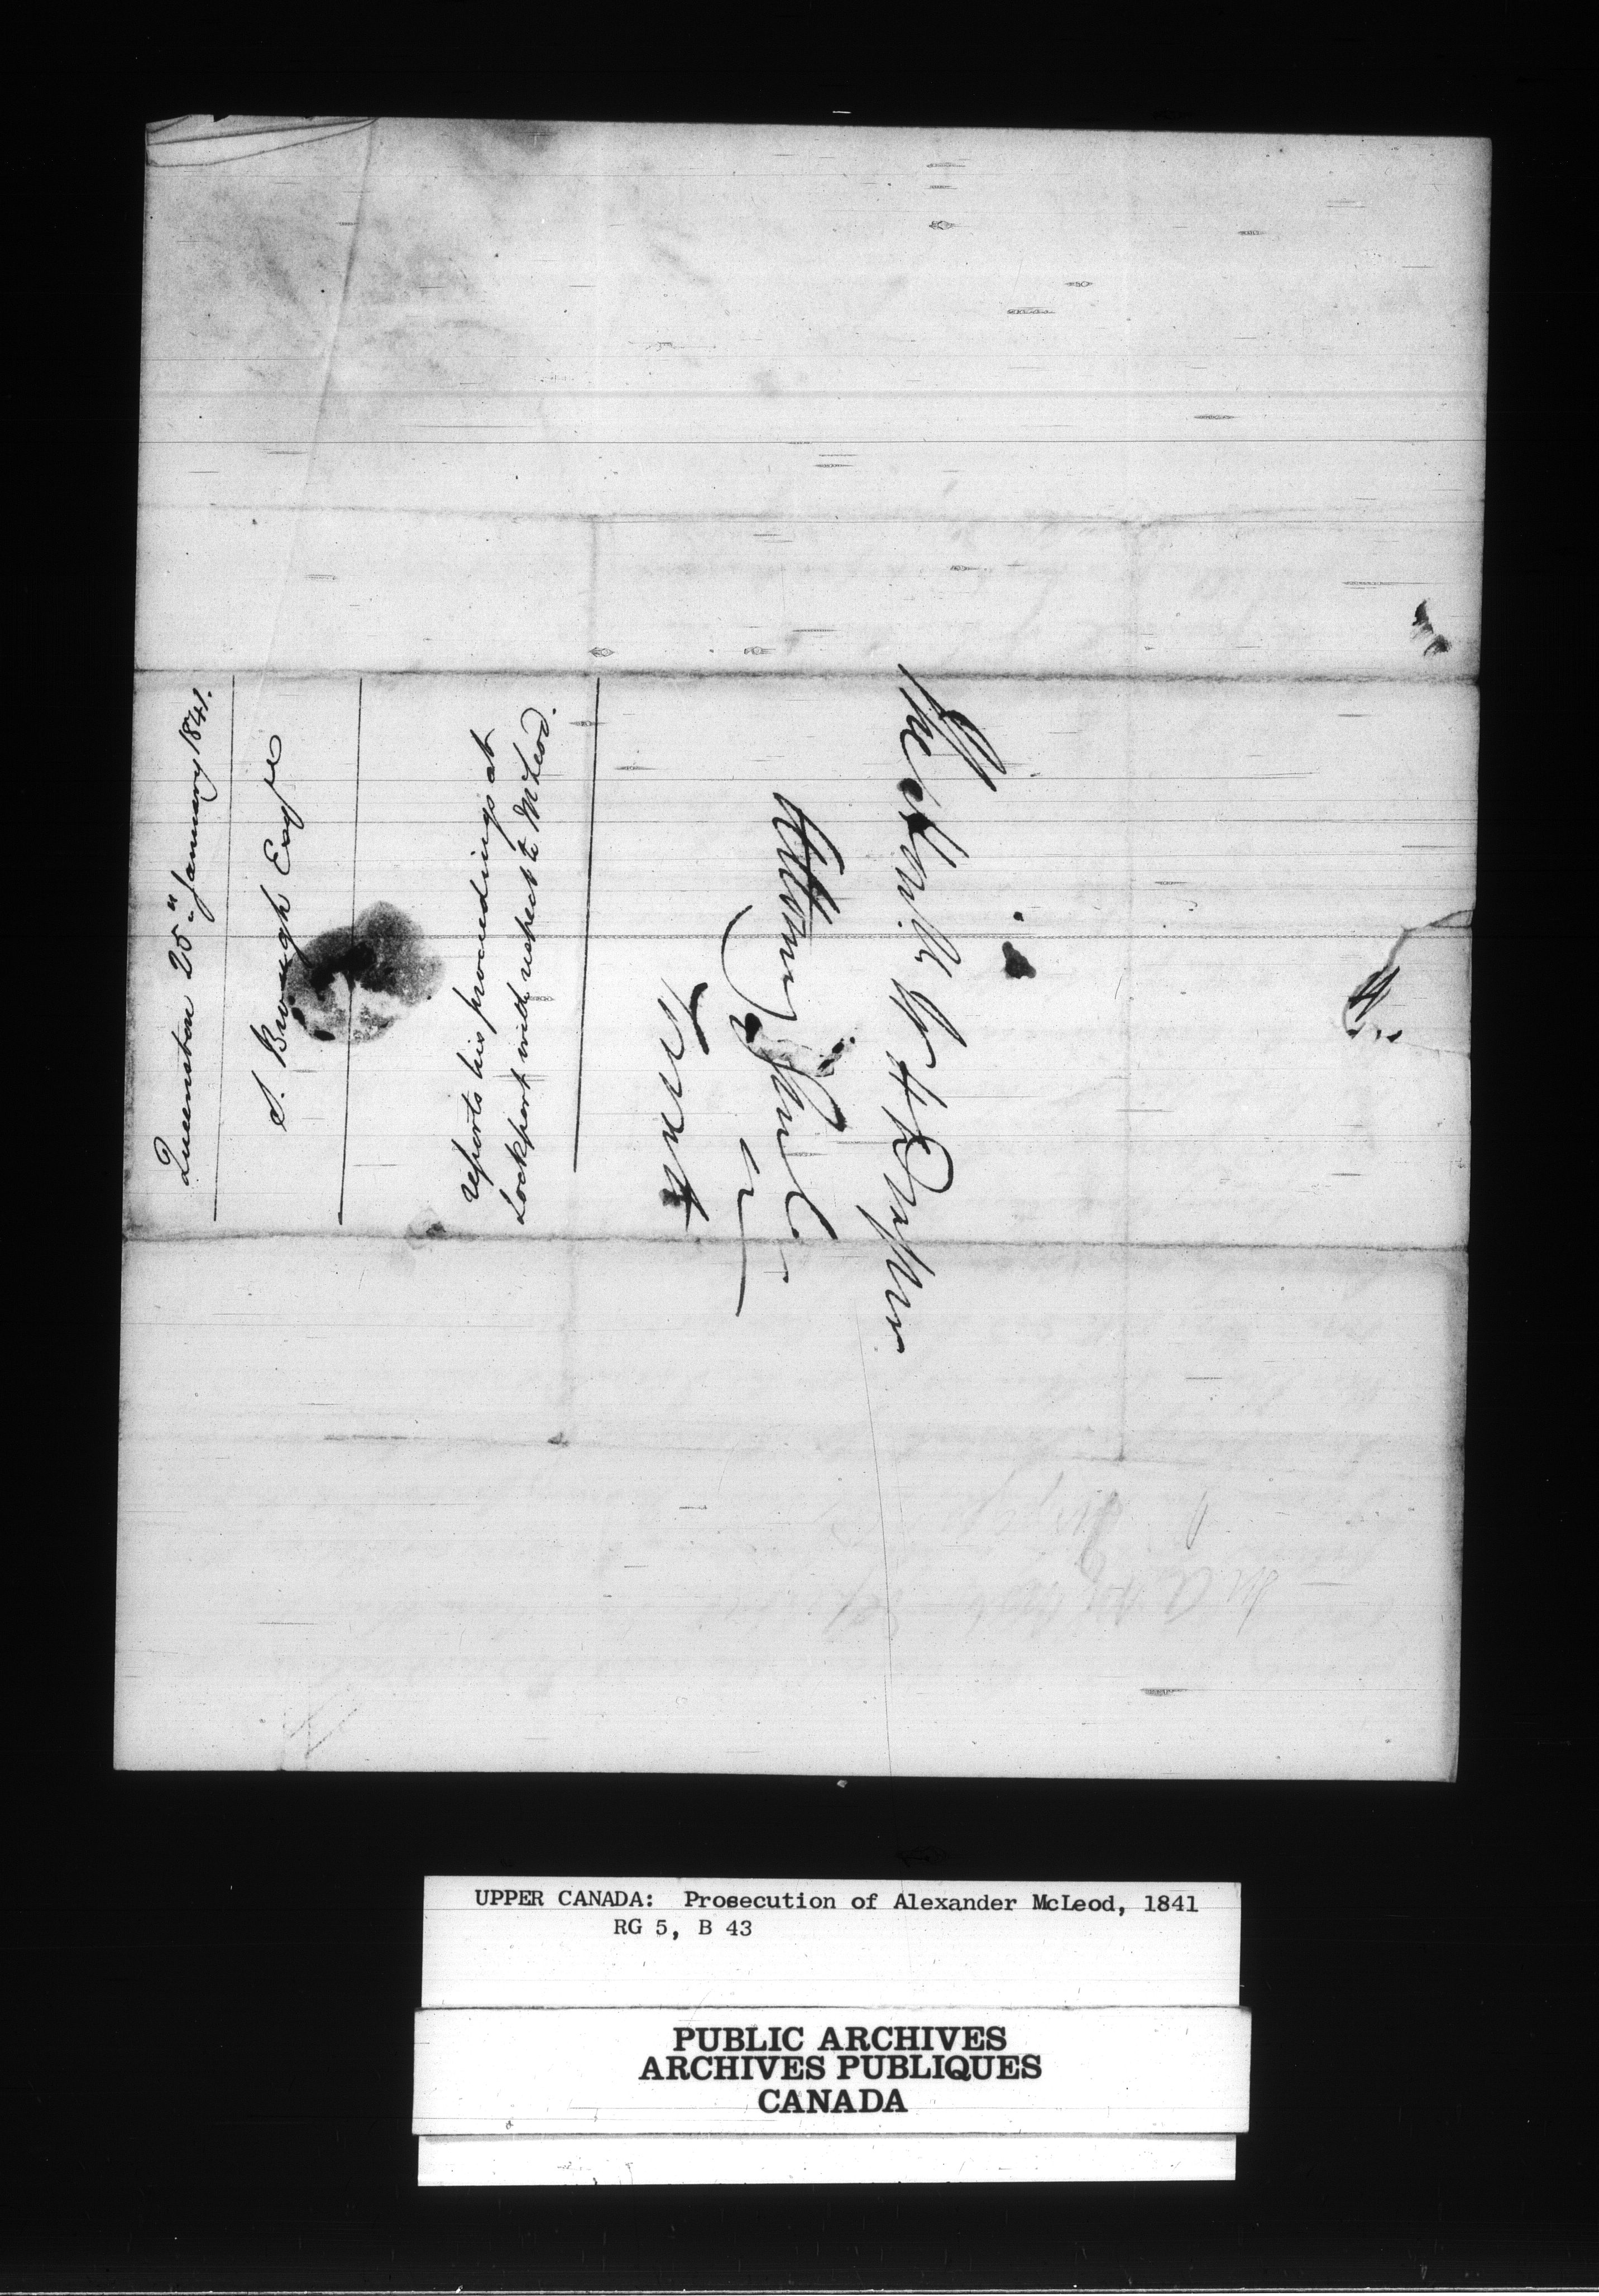 Queenston 25" January 1841.
S. Brough Esqre
reports his proceedings at
Lockport with respect to McLeod.
The Honble W H Draper
Attorney Genl
Toronto
UPPER CANADA: Prosecution of Alexander McLeod, 1841
RG 5, B 43
PUBLIC ARCHIVES
ARCHIVES PUBLIQUES
CANADA